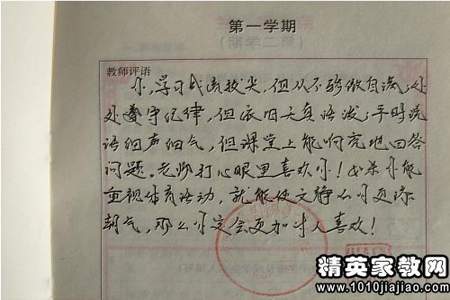 第一学期
教师评语
你,学习成绩拔尖,但从不骄傲自满,处
处遵守纪律,但依旧天真活泼;平时说
话细声细气,但课堂上能响亮地回答
问题。老师打心眼里喜欢你!如果你能
重视体育活动,就能使文静的你更添
朝气,那么你定会更加讨人喜欢!
精英家教网
www.1010jiajiao.com